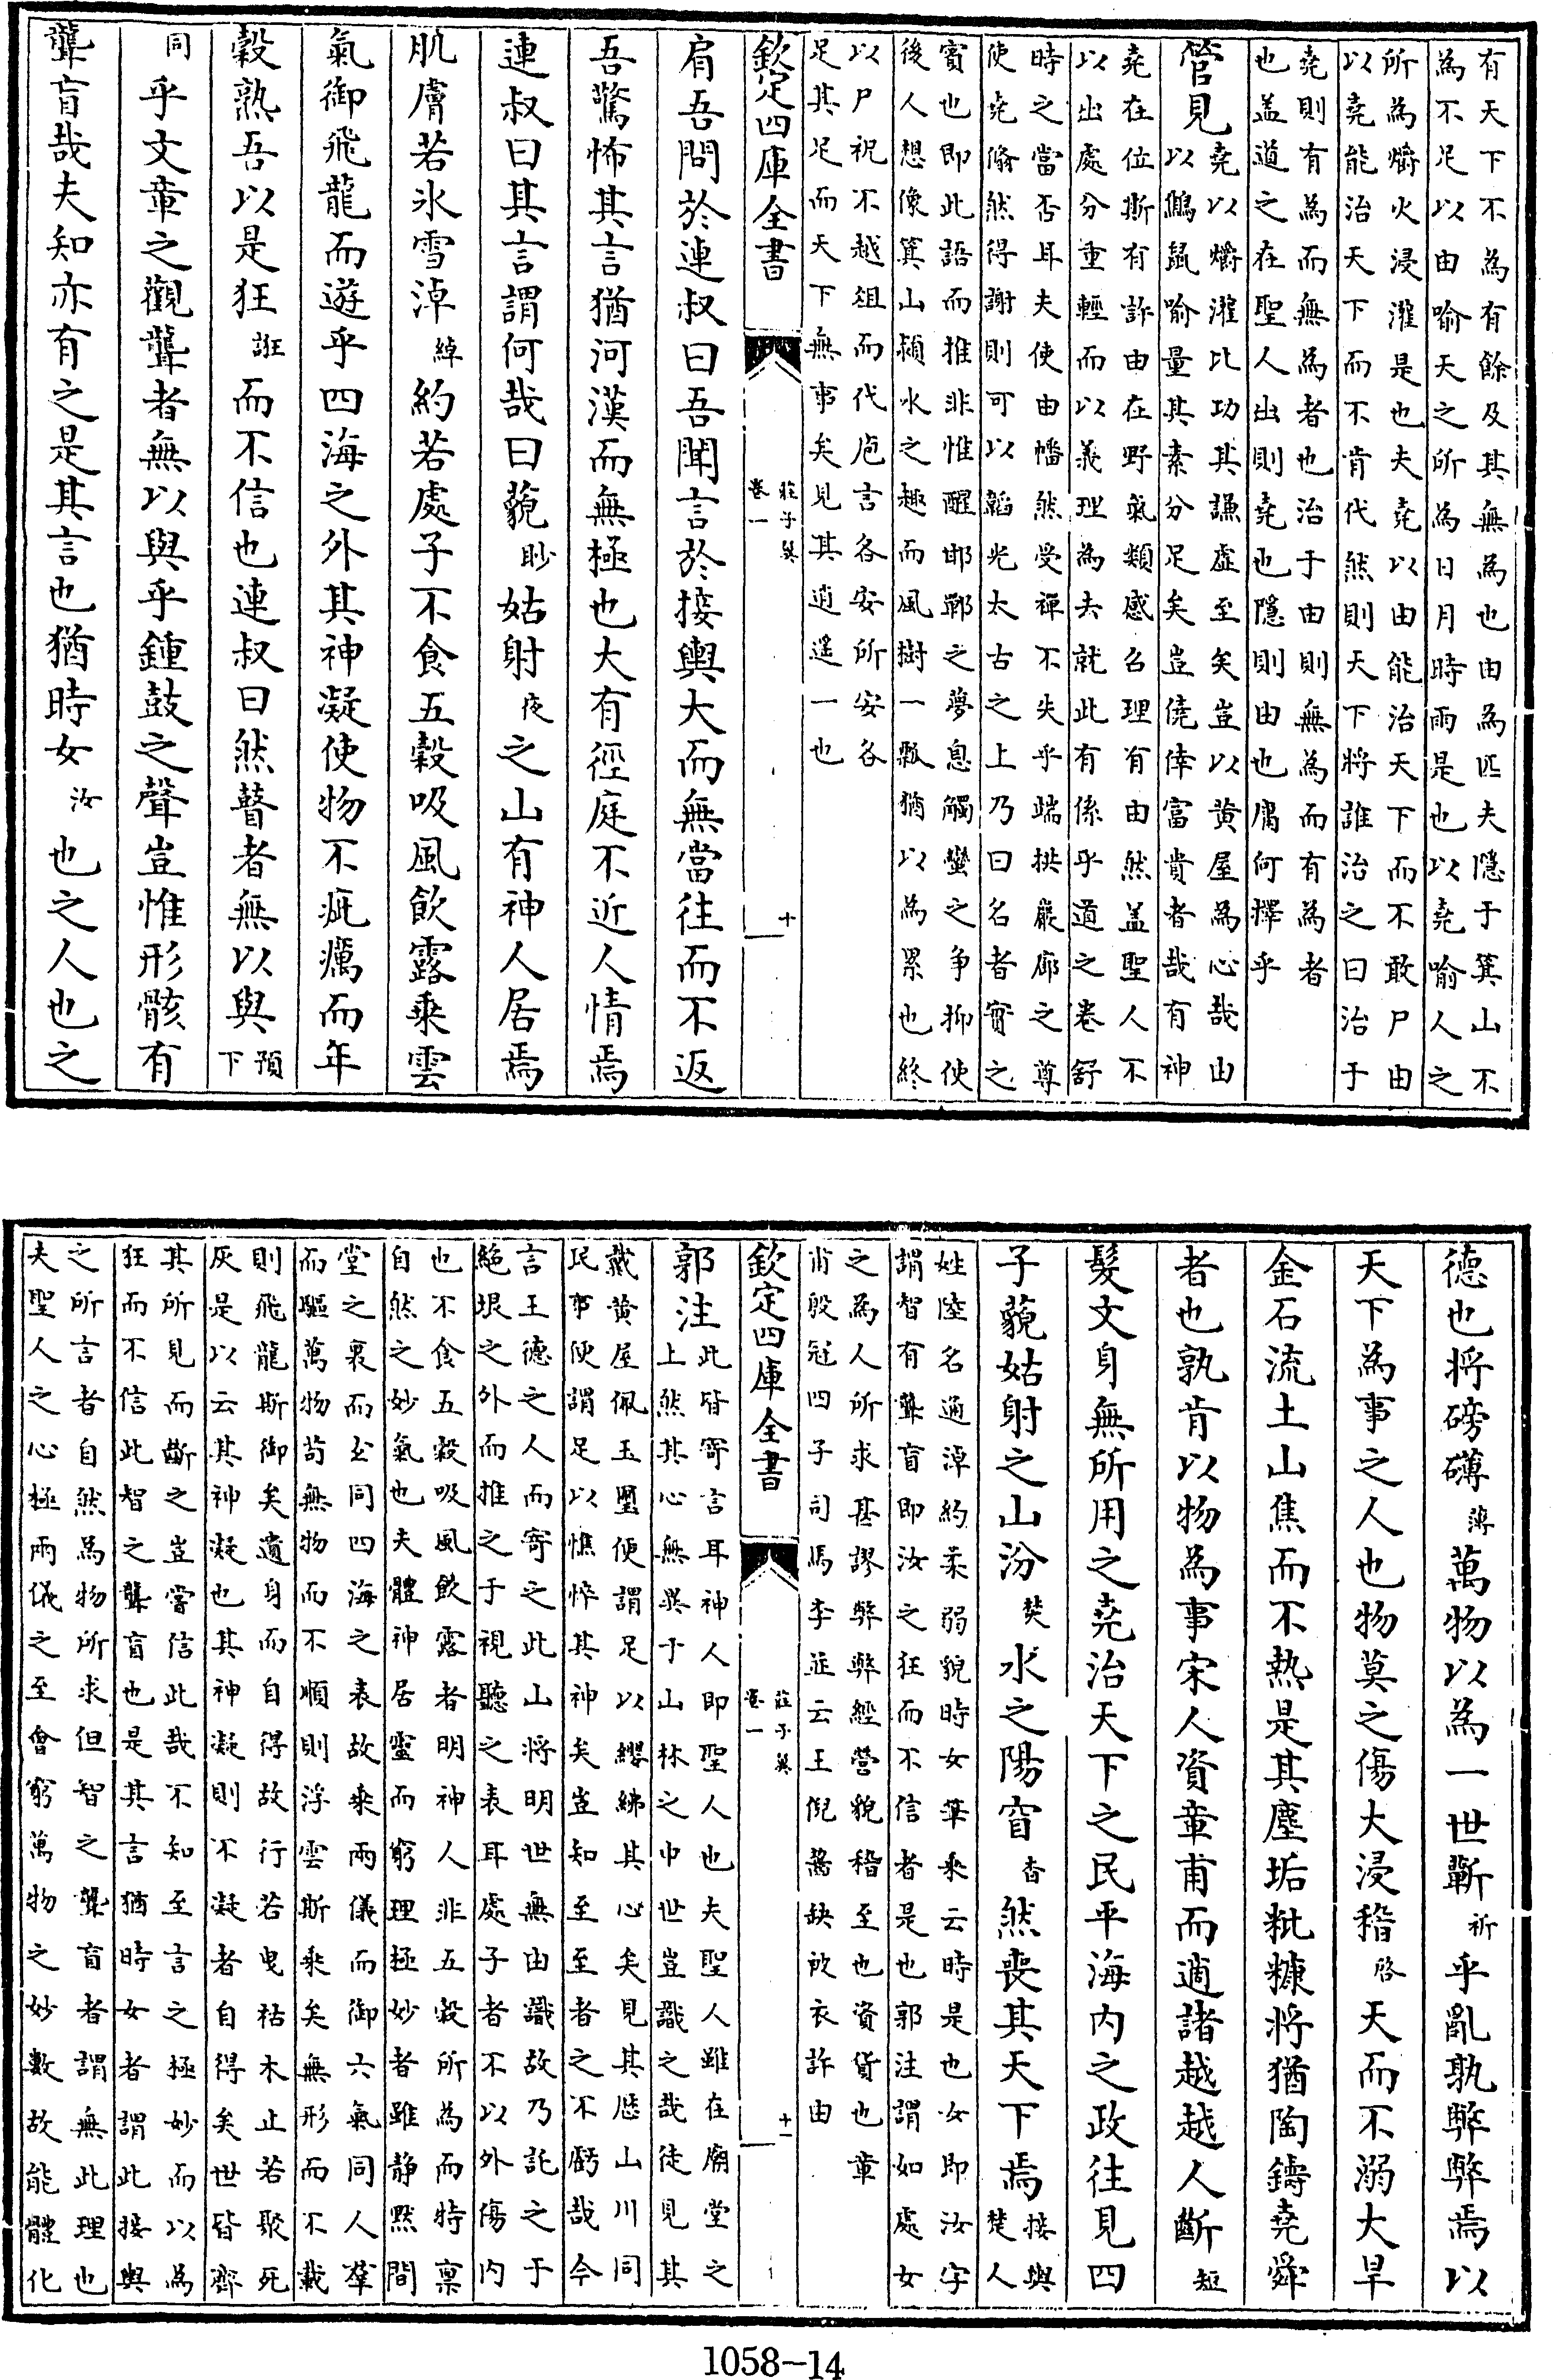 有天下不為有餘及其無為也由為匹夫隱于箕山不
為不足以由喻天之所為日月時雨是也以堯喻人之
所為爝火浸灌是也夫堯以由能治天下而不敢尸由
以堯能治天下而不肯代然則天下將誰治之曰治于
堯則有為而無為者也治于由則無為而有為者
也盖道之在聖人出則堯也隱則由也庸何擇乎
管見堯以爝灌比功其謙虛至矣豈以黃屋為心哉山
以鷦鼠喻量其素分足矣豈僥倖富貴者哉有神
堯在位斯有許由在野氣類感召理有由然盖聖人不
以出處分重輕而以義理為去就此有係乎道之卷舒
時之當否耳夫使由幡然受禪不失乎端拱巖廊之尊
使堯翛然得謝則可以韜光太古之上乃曰名者實之
賓也即此語而推非惟醒邯鄲之夢息觸蠻之爭抑使
後人想像箕山潁水之趣而風樹一瓢猶以為累也終
以尸祝不越俎而代庖言各安所安各
足其足而天下無事矣見其逍遥一也
欽定四庫全書
莊子翼
卷一
十
肩吾問於連叔曰吾聞言於接輿大而無當往而不返
吾驚怖其言猶河漢而無極也大有徑庭不近人情焉
連叔曰其言謂何哉曰藐眇姑射夜之山有神人居焉
肌膚若氷雪淖綽約若處子不食五穀吸風飲露乘雲
氣御飛龍而遊乎四海之外其神凝使物不疵癘而年
穀熟吾以是狂誑而不信也連叔曰然瞽者無以與預下
同乎文章之觀聾者無以與乎鐘鼓之聲豈惟形骸有
聾盲哉夫知亦有之是其言也猶時女汝也之人也之
德也將磅礴薄萬物以為一世蘄祈乎亂孰弊弊焉以
天下為事之人也物莫之傷大浸稽啓天而不溺大旱
金石流土山焦而不熱是其塵垢粃糠將猶陶鑄堯舜
者也孰肯以物為事宋人資章甫而適諸越越人斷短
髮文身無所用之堯治天下之民平海内之政往見四
子藐姑射之山汾焚水之陽窅杳然喪其天下焉接輿楚人
姓陸名通淖約柔弱貌時女筆乘云時是也女即汝字
謂智有聾盲即汝之狂而不信者是也郭注謂如處女
之為人所求甚謬弊弊經營貌稽至也資貨也章
甫殷冠四子司馬李並云王倪齧缺被衣許由
欽定四庫全書
莊子翼
卷一
十一
郭注此皆寄言耳神人即聖人也夫聖人雖在廟堂之
上然其心無異于山林之中世豈識之哉徒見其
戴黃屋佩玉璽便謂足以纓紼其心矣見其歷山川同
民事便謂足以憔悴其神矣豈知至至者之不虧哉今
言王德之人而寄之此山將明世無由識故乃託之于
絶垠之外而推之于視聽之表耳處子者不以外傷内
也不食五穀吸風飲露者明神人非五穀所為而特稟
自然之妙氣也夫體神居靈而窮理極妙者雖静黙間
堂之裏而玄同四海之表故乘兩儀而御六氣同人羣
而驅萬物苟無物而不順則浮雲斯乘矣無形而不載
則飛龍斯御矣遺身而自得故行若曳枯木止若聚死
灰是以云其神凝也其神凝則不凝者自得矣世皆齊
其所見而斷之豈嘗信此哉不知至言之極妙而以為
狂而不信此智之聾盲也是其言猶時女者謂此接輿
之所言者自然為物所求但智之聾盲者謂無此理也
夫聖人之心極兩儀之至會窮萬物之妙數故能體化
1058-14